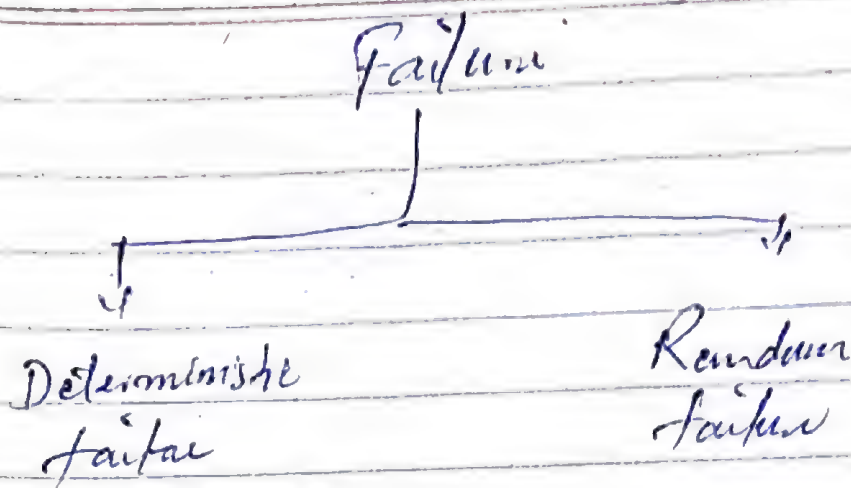 Failure
Deterministic
failure
Random
failure